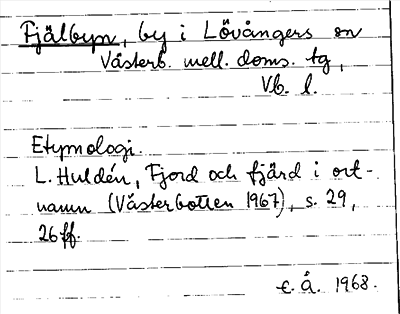 Fjälbyn, by i Lövångers sn
Västerb. mell. doms. tg,
Vb. l.
Etymologi.
L. Huldén, Fjord och fjärd i ort-
namn (Västerbotten 1967), s. 29,
26 ff.
E. Å. 1968.